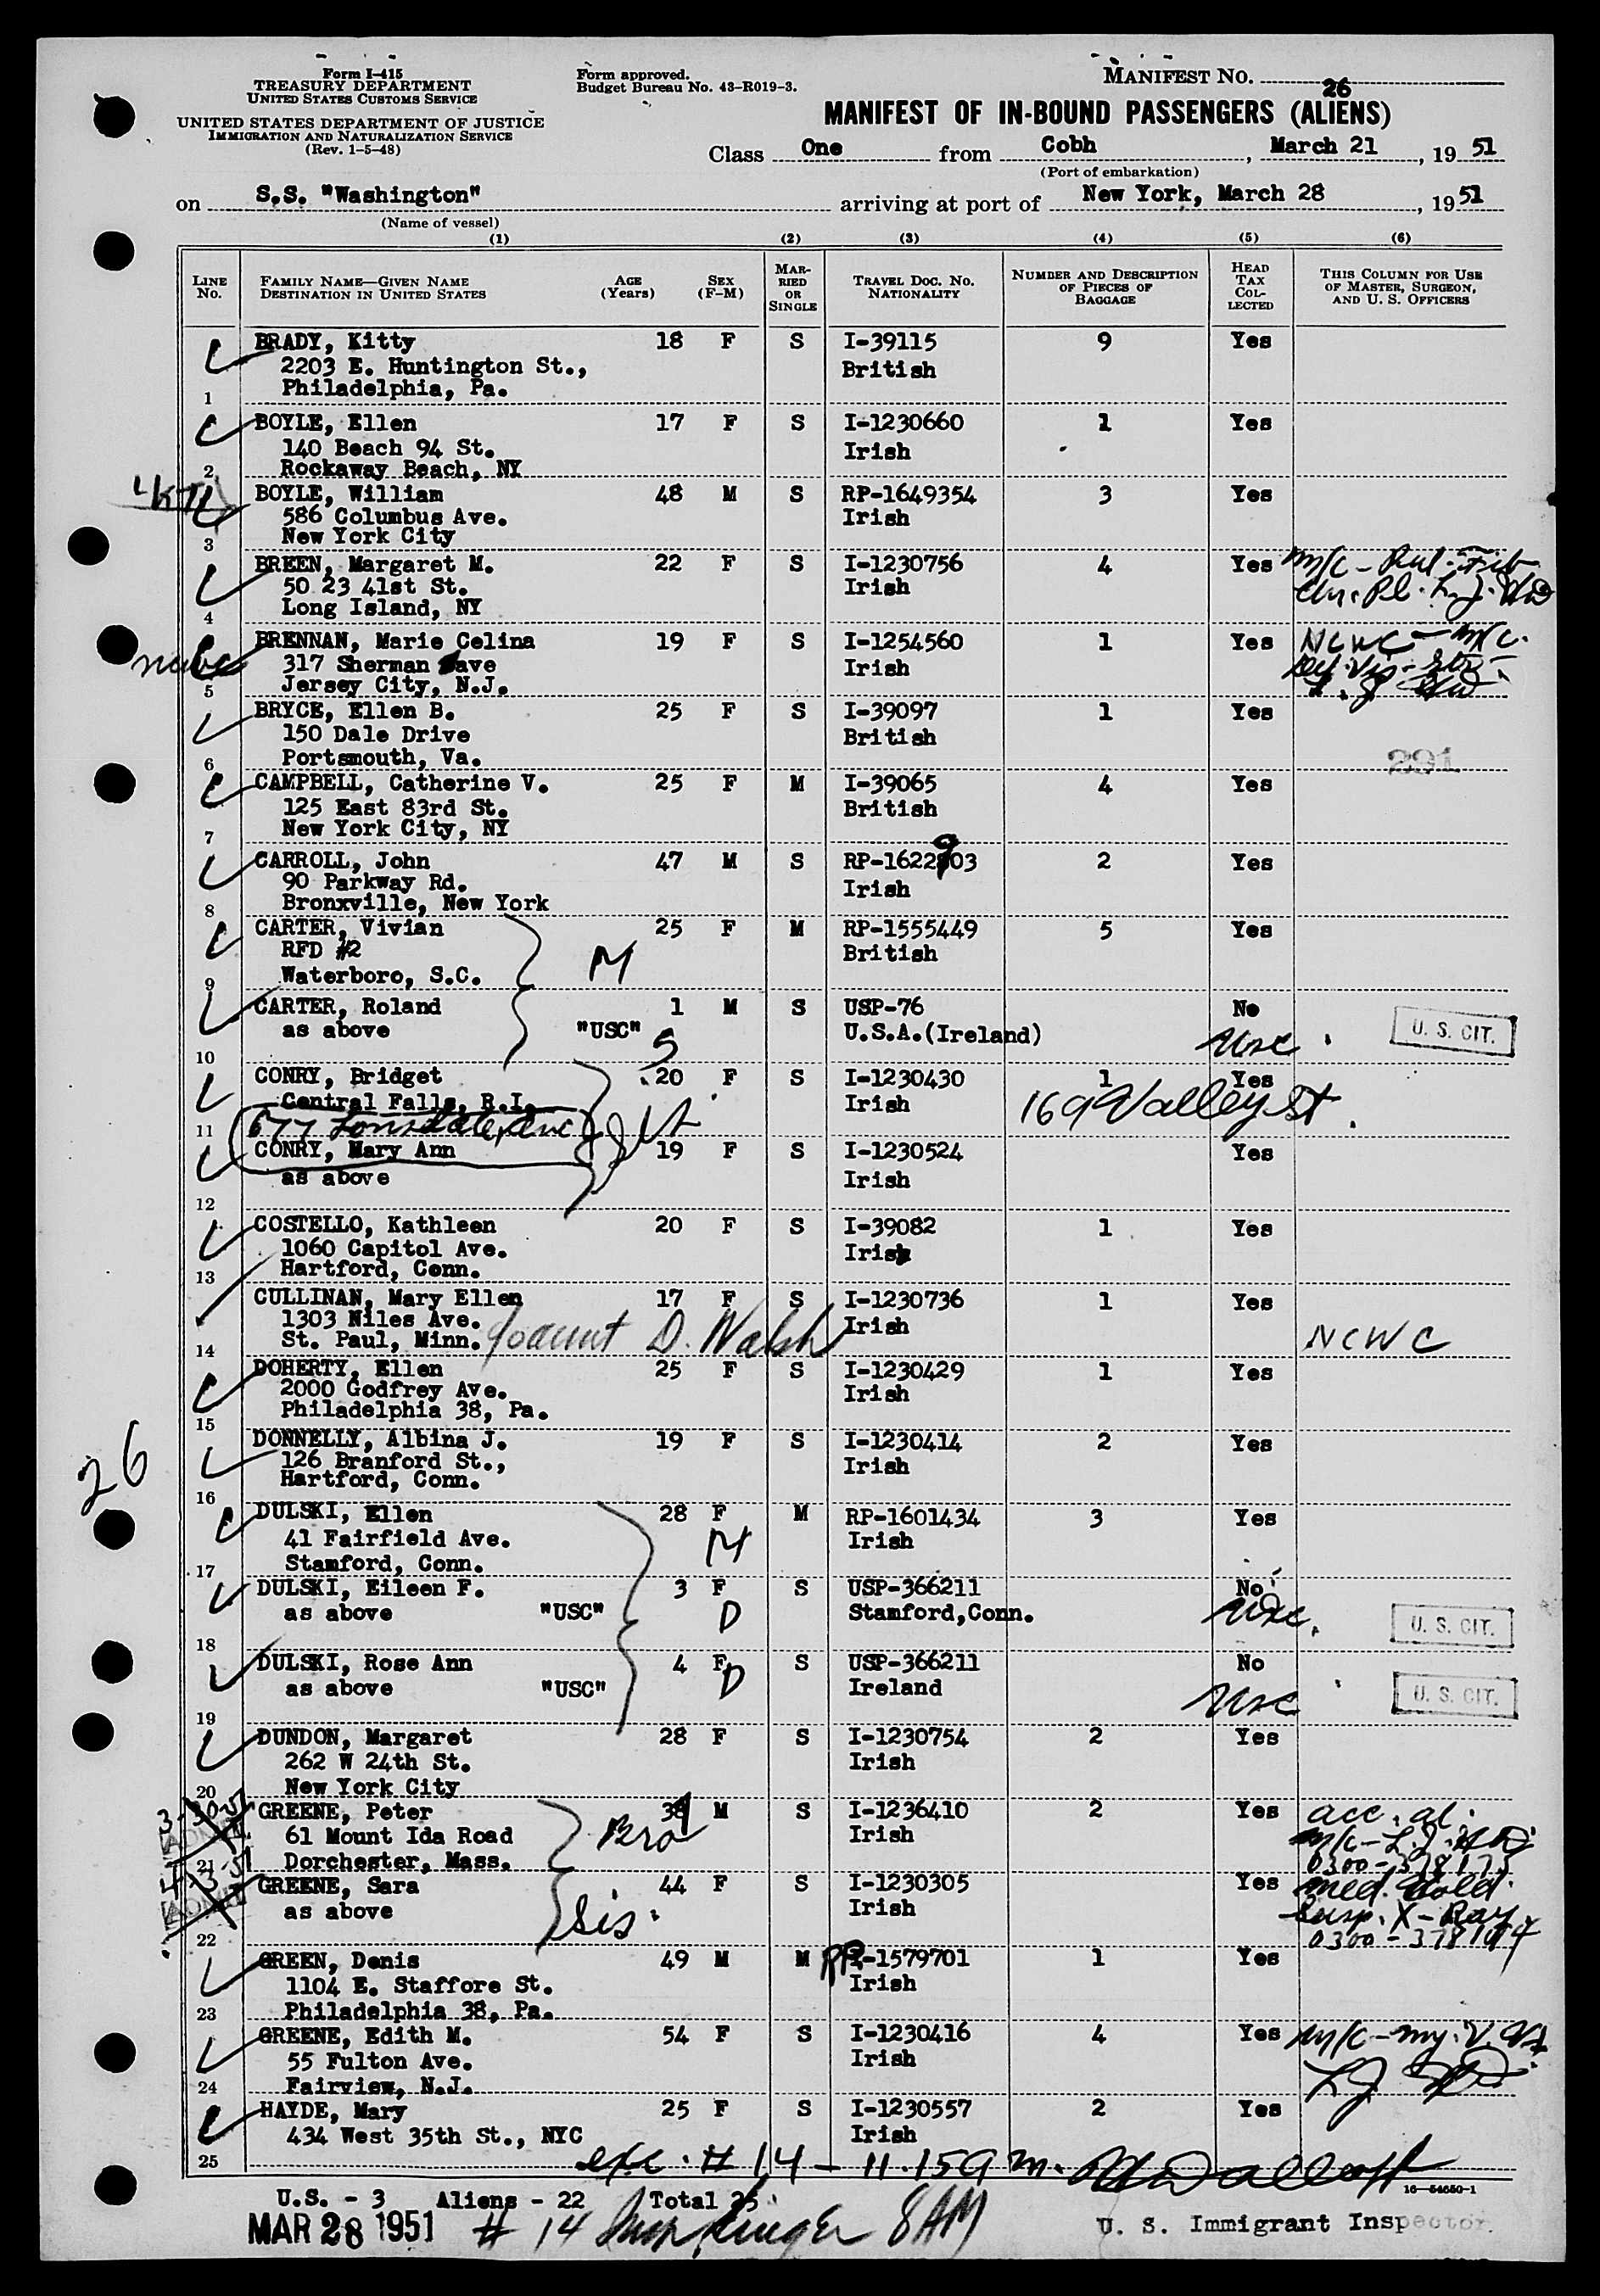 Form I-415
TREASURY DEPARTMENT
UNITED STATES CUSTOMS SERVICE
UNITED STATES DEPARTMENT OF JUSTICE
IMMIGRATION AND NATURALIZATION SERVICE
(Rev. 1-5-48)
Form approved.
Budget Bureau No. 43-R019-3.
MANIFEST NO. 26
MANIFEST OF IN-BOUND PASSENGERS (ALIENS)
Class One from Cobh, March 21, 1951
(Port of embarkation)
on S.S. "Washington" arriving at port of New York, March 28, 1951
(Name of vessel)
(1) (2) (3) (4) (5) (6)
LINE No. FAMILY NAME—GIVEN NAME DESTINATION IN UNITED STATES AGE (Years) SEX (F-M) MARRIED OR SINGLE TRAVEL DOC. No. NATIONALITY NUMBER AND DESCRIPTION OF PIECES OF BAGGAGE HEAD TAX COLLECTED THIS COLUMN FOR USE OF MASTER, SURGEON, AND U. S. OFFICERS
BRADY, Kitty 18 F S I-39115 9 Yes
2203 E. Huntington St., British
1 Philadelphia, Pa.
BOYLE, Ellen 17 F S I-1230660 1 Yes
140 Beach 94 St. Irish
2 Rockaway Beach, NY
BOYLE, William 48 M S RP-1649354 3 Yes
586 Columbus Ave. Irish
3 New York City
BREEN, Margaret M. 22 F S I-1230756 4 Yes M/C - Pul. Fib
50 23 41st St. Irish Chr. Pl. L.J. HD
4 Long Island, NY
BRENNAN, Marie Celina 19 F S I-1254560 1 Yes NCWC - M/C.
317 Sherman ave Irish Def. Vis
5 Jersey City, N.J.
BRYCE, Ellen B. 25 F S I-39097 1 Yes
150 Dale Drive British
6 Portsmouth, Va. 291
CAMPBELL, Catherine V. 25 F M I-39065 4 Yes
125 East 83rd St. British
7 New York City, NY
CARROLL, John 47 M S RP-1622903 2 Yes
90 Parkway Rd. Irish
8 Bronxville, New York
CARTER, Vivian 25 F M RP-1555449 5 Yes
RFD #2 M British
9 Waterboro, S.C.
CARTER, Roland 1 M S USP-76 No
as above "USC" S U.S.A.(Ireland) USC U. S. CIT.
10
CONRY, Bridget 20 F S I-1230430 1 Yes
Central Falls, R.I. Irish 169 Valley St.
11 677 Lonsdale Ave
CONRY, Mary Ann 19 F S I-1230524 Yes
as above Irish
12
COSTELLO, Kathleen 20 F S I-39082 1 Yes
1060 Capitol Ave. Irish
13 Hartford, Conn.
CULLINAN, Mary Ellen 17 F S I-1230736 1 Yes
1303 Niles Ave. Irish
14 St. Paul, Minn. D. Walsh NCWC
DOHERTY, Ellen 25 F S I-1230429 1 Yes
2000 Godfrey Ave. Irish
15 Philadelphia 38, Pa.
26
DONNELLY, Albina J. 19 F S I-1230414 2 Yes
126 Branford St., Irish
Hartford, Conn.
16
DULSKI, Ellen 28 F M RP-1601434 3 Yes
41 Fairfield Ave. M Irish
17 Stamford, Conn.
DULSKI, Eileen F. 3 F S USP-366211 No
as above "USC" D Stamford,Conn. USC U. S. CIT.
18
DULSKI, Rose Ann 4 F S USP-366211 No
as above "USC" D Ireland USC U. S. CIT.
19
DUNDON, Margaret 28 F S I-1230754 2 Yes
262 W 24th St. Irish
20 New York City
GREENE, Peter 39 M S I-1236410 2 Yes acc. al.
61 Mount Ida Road Bro Irish M/C - L.J. HD
21 Dorchester, Mass. 0300-378175
GREENE, Sara 44 F S I-1230305 Yes Med. Hold
as above Sis. Irish Susp. X-Ray
22 0300-378174
GREEN, Denis 49 M M RP-1579701 1 Yes
1104 E. Staffore St. Irish
23 Philadelphia 38, Pa.
GREENE, Edith M. 54 F S I-1230416 4 Yes M/C - my. V.
55 Fulton Ave. Irish
24 Fairview, N.J.
HAYDE, Mary 25 F S I-1230557 2 Yes
434 West 35th St., NYC Irish
25 exc. #14 - 11.15 a m.
16—54650-1
U.S. - 3 Aliens - 22 Total 25
MAR 28 1951 #14 8 AM U. S. Immigrant Inspector